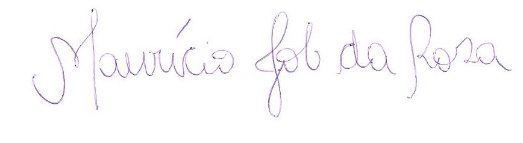 Maurício Job da Rosa